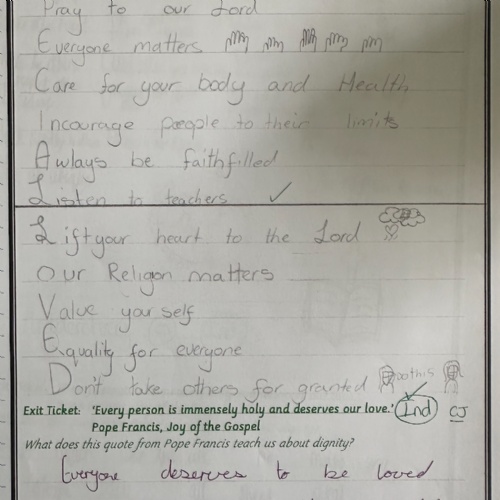 Pray to our Lord
Everyone matters
Care for your body and Health
Incourage people to their limits
Awlays be faithfilled
Listen to teachers
Lift your heart to the Lord
Our Religon matters
Value yourself
Equality for everyone
Don't take others for granted
Exit Ticket: 'Every person is immensely holy and deserves our love.' Ind CJ
Pope Francis, Joy of the Gospel
What does this quote from Pope Francis teach us about dignity?
Everyone deserves to be loved